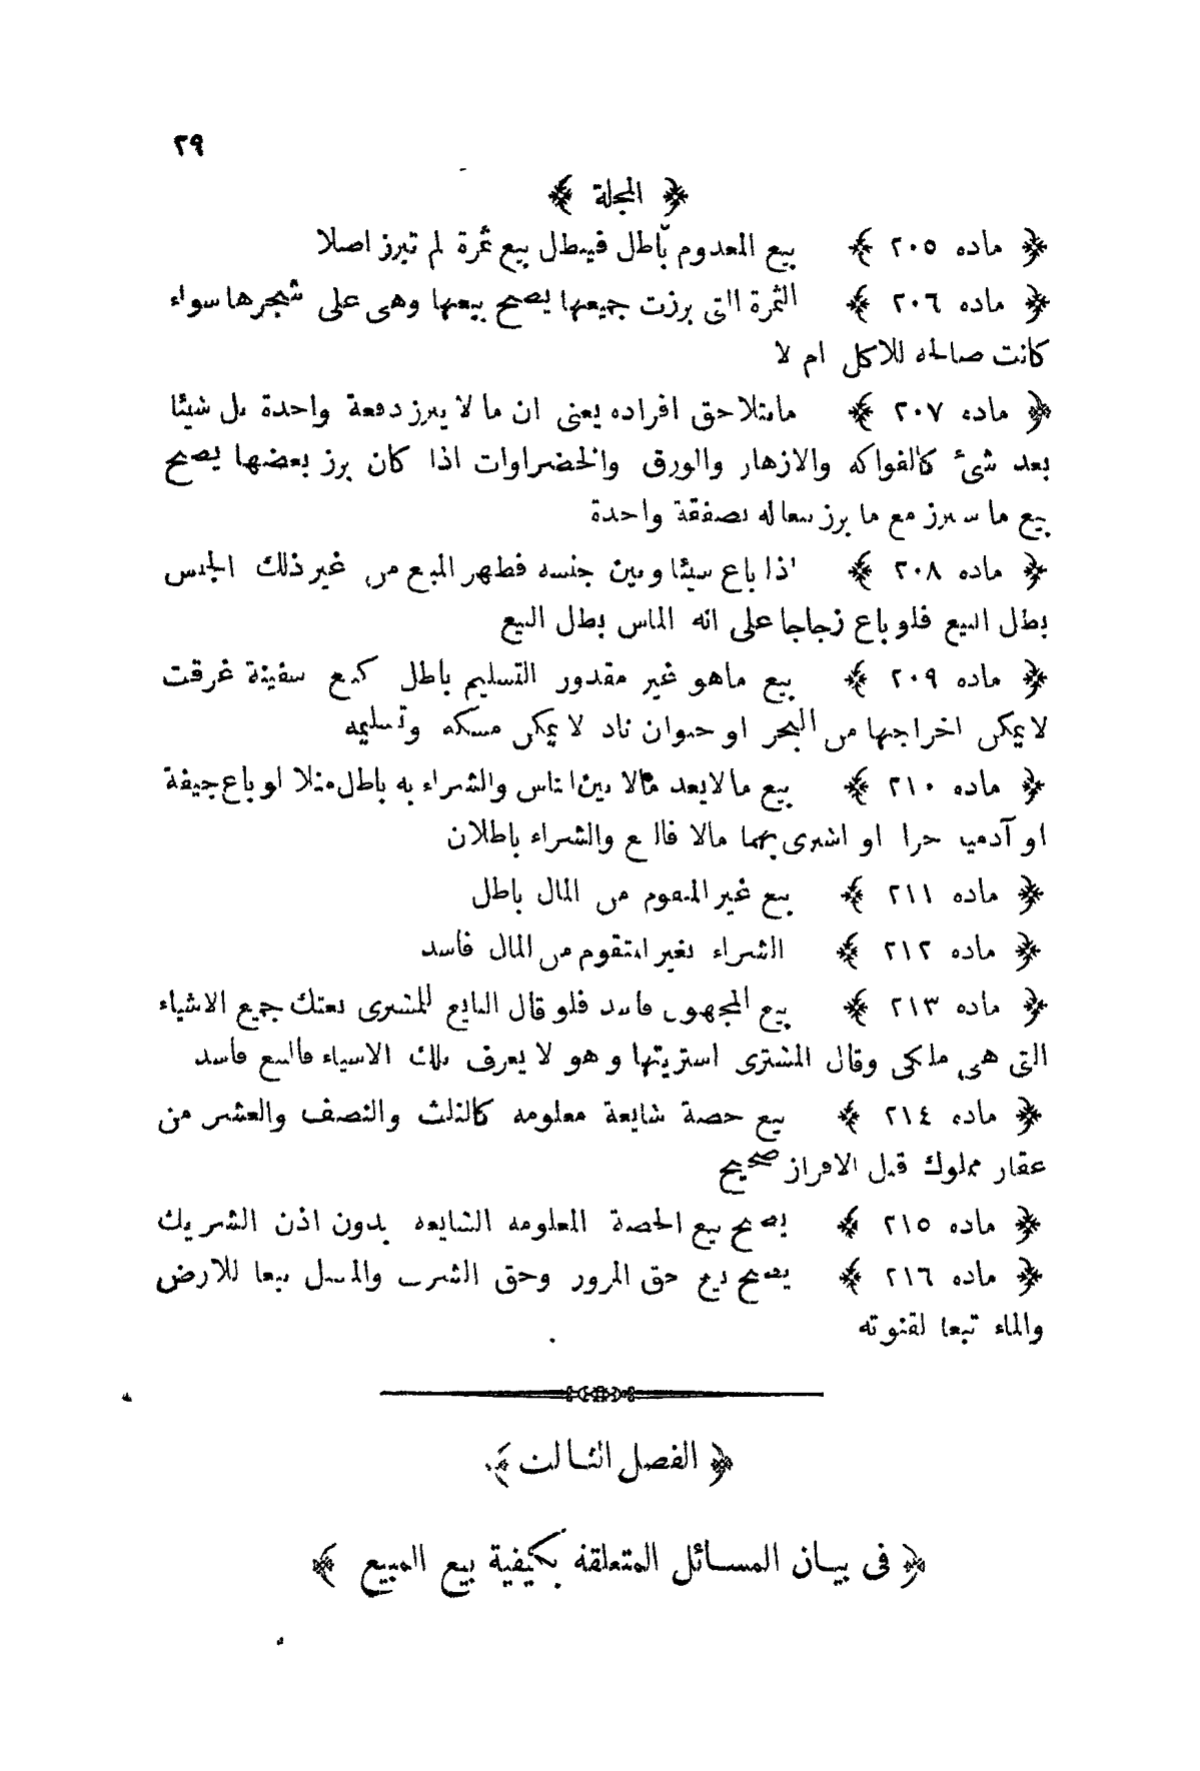 ٢٩
﴿ المجلة ﴾
﴿ ماده ٢٠٥ ﴾ بيع المعدوم باطل فيبطل بيع ثمرة لم تبرز اصلا
﴿ ماده ٢٠٦ ﴾ الثمرة التى برزت جميعها يصح بيعها وهى على شجرها سواء
كانت صالحه للاكل ام لا
﴿ ماده ٢٠٧ ﴾ ماتتلاحق افراده يعنى ان ما لا يبرز دفعة واحدة بل شيئا
بعد شئ كالفواكه والازهار والورق والخضراوات اذا كان برز بعضها يصح
بيع ما سيبرز مع ما برز تبعا له بصفقة واحدة
﴿ ماده ٢٠٨ ﴾ اذا باع شيئا وبين جنسه فظهر المبيع من غير ذلك الجنس
بطل البيع فلو باع زجاجا على انه الماس بطل البيع
﴿ ماده ٢٠٩ ﴾ بيع ماهو غير مقدور التسليم باطل كبيع سفينة غرقت
لا يمكن اخراجها من البحر او حيوان ناد لا يمكن مسكه وتسليمه
﴿ ماده ٢١٠ ﴾ بيع مالايعد مالا بين الناس والشراء به باطل مثلا لو باع جيفة
او آدميا حرا او اشترى بهما مالا فالبيع والشراء باطلان
﴿ ماده ٢١١ ﴾ بيع غير المتقوم من المال باطل
﴿ ماده ٢١٢ ﴾ الشراء بغير المتقوم من المال فاسد
﴿ ماده ٢١٣ ﴾ بيع المجهول فاسد فلو قال البايع للمشترى بعتك جميع الاشياء
التى هى ملكى وقال المشترى اشتريتها وهو لا يعرف تلك الاشياء فالبيع فاسد
﴿ ماده ٢١٤ ﴾ بيع حصة شايعة معلومه كالثلث والنصف والعشر من
عقار مملوك قبل الافراز صحيح
﴿ ماده ٢١٥ ﴾ يصح بيع الحصة المعلومه الشايعه بدون اذن الشريك
﴿ ماده ٢١٦ ﴾ يصح بيع حق المرور وحق الشرب والمسيل تبعا للارض
والماء تبعا لقنوته
﴿ الفصل الثالث ﴾
﴿ فى بيان المسائل المتعلقه بكيفية بيع المبيع ﴾